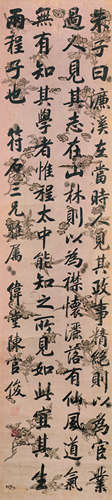 朱子曰濂溪在當時人見其政事精絕則以為宦業
過人見其志在山林則以為襟懷灑落有仙風道氣
無有知其學者惟程太中能知之所見如此宜其生
兩程子也　符石三兄雅屬　偉堂陳官俊